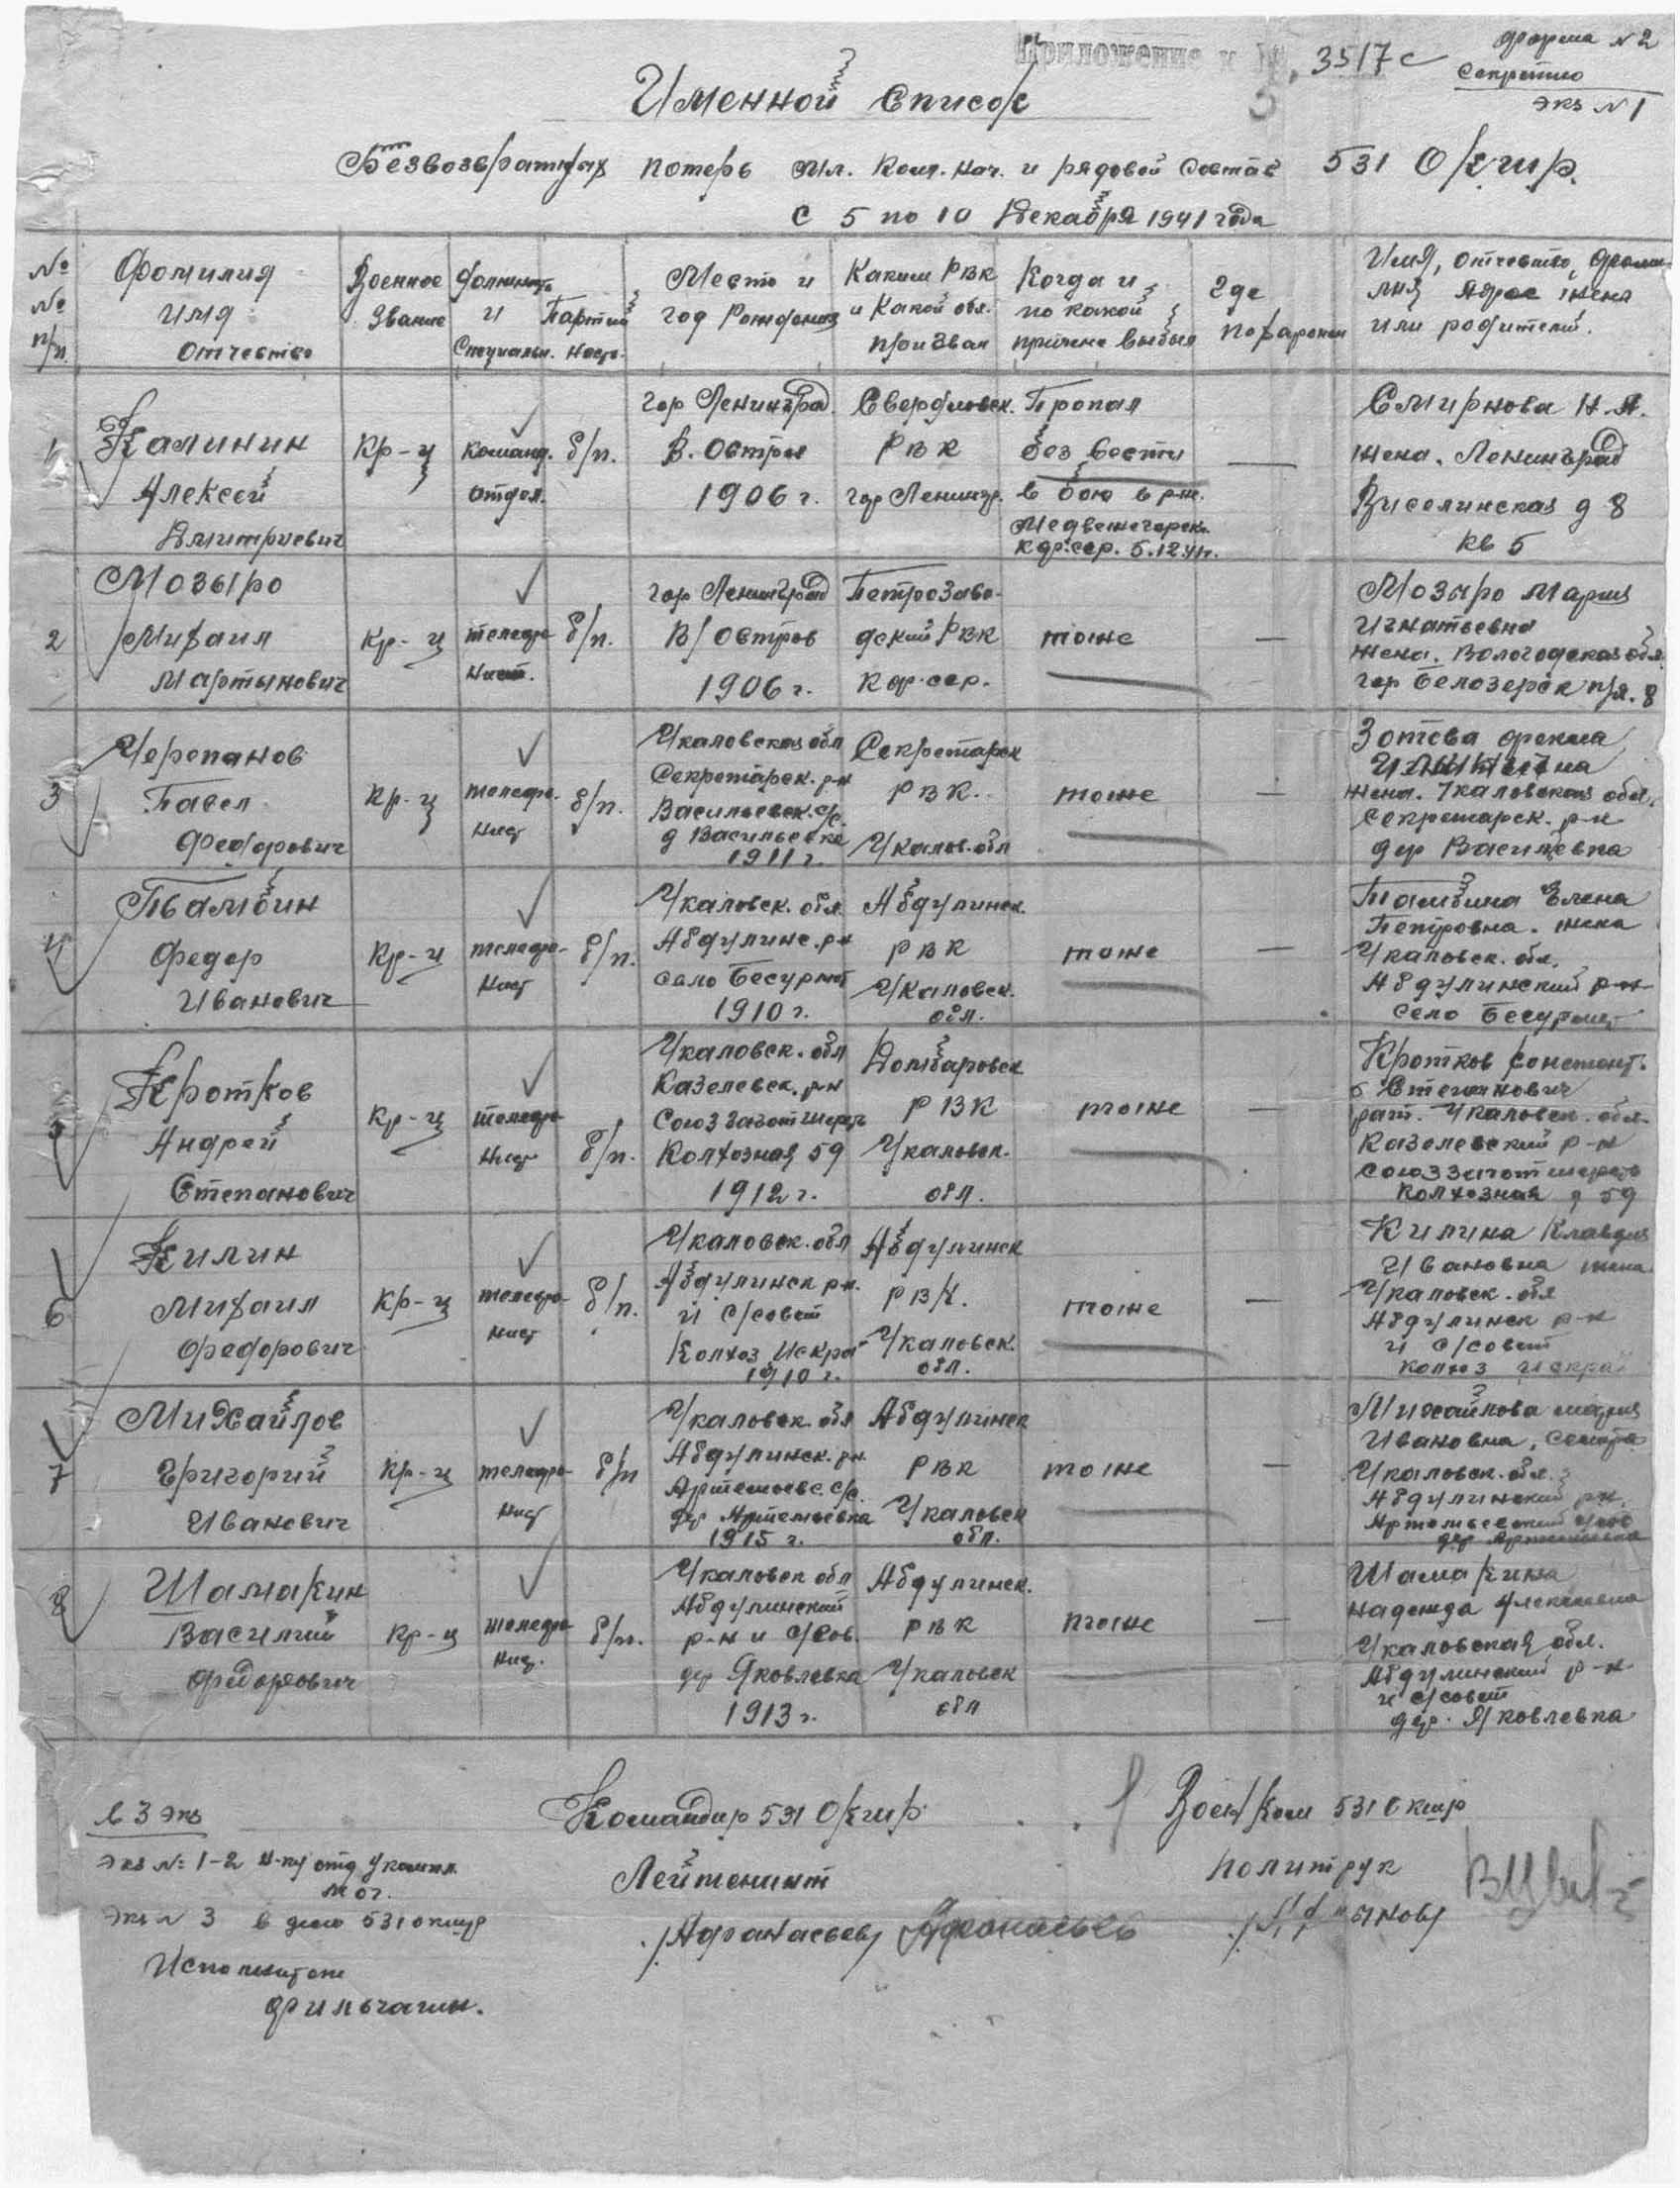 Приложение к № 3517с
форма №2
Секретно
экз №1
Именной список
Безвозвратных потерь мл. ком. нач. и рядовой состав 531 ОКШР.
с 5 по 10 Декабря 1941 года
№ № п/п.
Фомилия имя отчество
Военное звание
Должность и специальн.
Партий ность
Место и год рождения
Каким РВК и какой обл. призван
Когда и по какой причине выбыл
Где похаронен
Имя, отчество, фамилия, адрес жены или родителей.
1
Калинин
Алексей
Дмитриевич
Кр-ц
Команд. отдел.
б/п.
гор Ленинград
В. Остров
1906 г.
Свердловск.
РВК
гор Ленингр.
Пропал
без вести
в бою в р-не.
Медвежегорск
К.ф.сср. 5.12.41г.
—
Смирнова Н.А.
жена. Ленинград
д 8
кв 5
2
Мозыро
Михаил
Мартынович
Кр-ц
телефо
нист.
б/п.
гор Ленинград
В/Остров
1906 г.
Петрозаво-
дский РВК
К.ф.сср.
тоже
—
Мозыро Мария
Игнатьевна
жена. Вологодская обл.
гор Белозерск п/я. 8
3
Черепанов
Павел
Федорович
Кр-ц
телефо-
нист
б/п.
Чкаловская обл
Секретарск. р-н
Васильевск. с/с.
д Васильевка
1911 г.
Секретарск
РВК.
Чкалов. обл
тоже
—
Зотева
жена. Чкаловская обл.
Секретарск. р-н
дер Васильевка
4
Тамбин
Федор
Иванович
Кр-ц
телефо-
нист
б/п.
Чкаловск. обл.
Абдулинс. р-н
село Бесурмет
1910 г.
Абдулинск.
РВК
Чкаловск.
обл.
тоже
—
Тамбина Елена
Петровна. жена
Чкаловск. обл.
Абдулинский р-н
село Бесурмет
5
Кротков
Андрей
Степанович
Кр-ц
телефо-
нист
б/п.
Чкаловск. обл
Казелевск. р-н
Союззаготшерсть
Колхозная 59
1912 г.
Домбаровск
РВК
Чкаловск.
обл.
тоже
—
Кротков Констант.
Степанович
Чкаловск. обл.
Казелевский р-н
Союззаготшерсть
Колхозная д 59
6
Килин
Михаил
Федорович
Кр-ц
телефо-
нист
б/п.
Чкаловск. обл
Абдулинск р-н.
И с/совет
Колхоз Искра
1910 г.
Абдулинск
РВК.
Чкаловск.
обл.
тоже
—
Килина Клавдия
Ивановна жена.
Чкаловск. обл
Абдулинск р-н
и с/совет
колхоз искра
7
Михайлов
Григорий
Иванович
Кр-ц
телефо-
нист
б/п
Чкаловск. обл
Абдулинск. р-н.
Артемьевс. с/с.
дер Артемьевка
1915 г.
Абдулинск
РВК
Чкаловск
обл.
тоже
—
Михайлова Мария
Ивановна, сестра
Чкаловск. обл.
Абдулинский р-н.
Артемьевский с/сов
дер Артемьевка
8
Шамакин
Василий
Федорович
Кр-ц
телефо-
нист.
б/п.
Чкаловск обл
Абдулинский
р-н и с/сов.
дер Яковлевка
1913 г.
Абдулинск.
РВК
Чкаловск
обл
тоже
—
Шамакина
Надежда Алексеевна
Чкаловская обл.
Абдулинский р-н
и с/совет
дер. Яковлевка
в 3 экз
экз № 1-2 Н-ку отд укомпл.
экз № 3 в дело 531 окшр
Исполнител
Фильчагин.
Командир 531 ОКШР
Лейтенант
/Афанасьев/ Афанасьев
Воен/ком 531 окшр
политрук